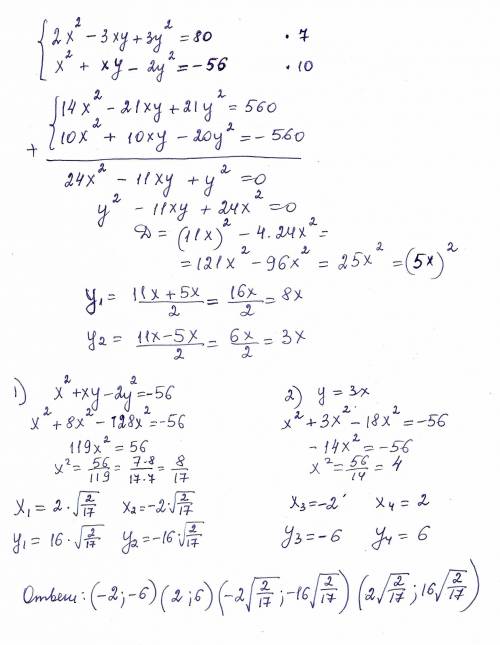 { 2x² - 3xy + 3y² = 80 · 7
x² + xy - 2y² = -56 · 10
+ { 14x² - 21xy + 21y² = 560
10x² + 10xy - 20y² = -560
24x² - 11xy + y² = 0
y² - 11xy + 24x² = 0
D = (11x)² - 4·24x² =
= 121x² - 96x² = 25x² = (5x)²
y₁ = (11x+5x)/2 = 16x/2 = 8x
y₂ = (11x-5x)/2 = 6x/2 = 3x
1) x² + xy - 2y² = -56
x² + 8x² - 128x² = -56
119x² = 56
x² = 56/119 = 7·8/17·7 = 8/17
x₁ = 2·√(2/17) x₂ = -2√(2/17)
y₁ = 16·√(2/17) y₂ = -16·√(2/17)
2) y = 3x
x² + 3x² - 18x² = -56
-14x² = -56
x² = 56/14 = 4
x₃ = -2 x₄ = 2
y₃ = -6 y₄ = 6
Ответ: (-2; -6) (2; 6) (-2√(2/17); -16√(2/17)) (2√(2/17); 16√(2/17))